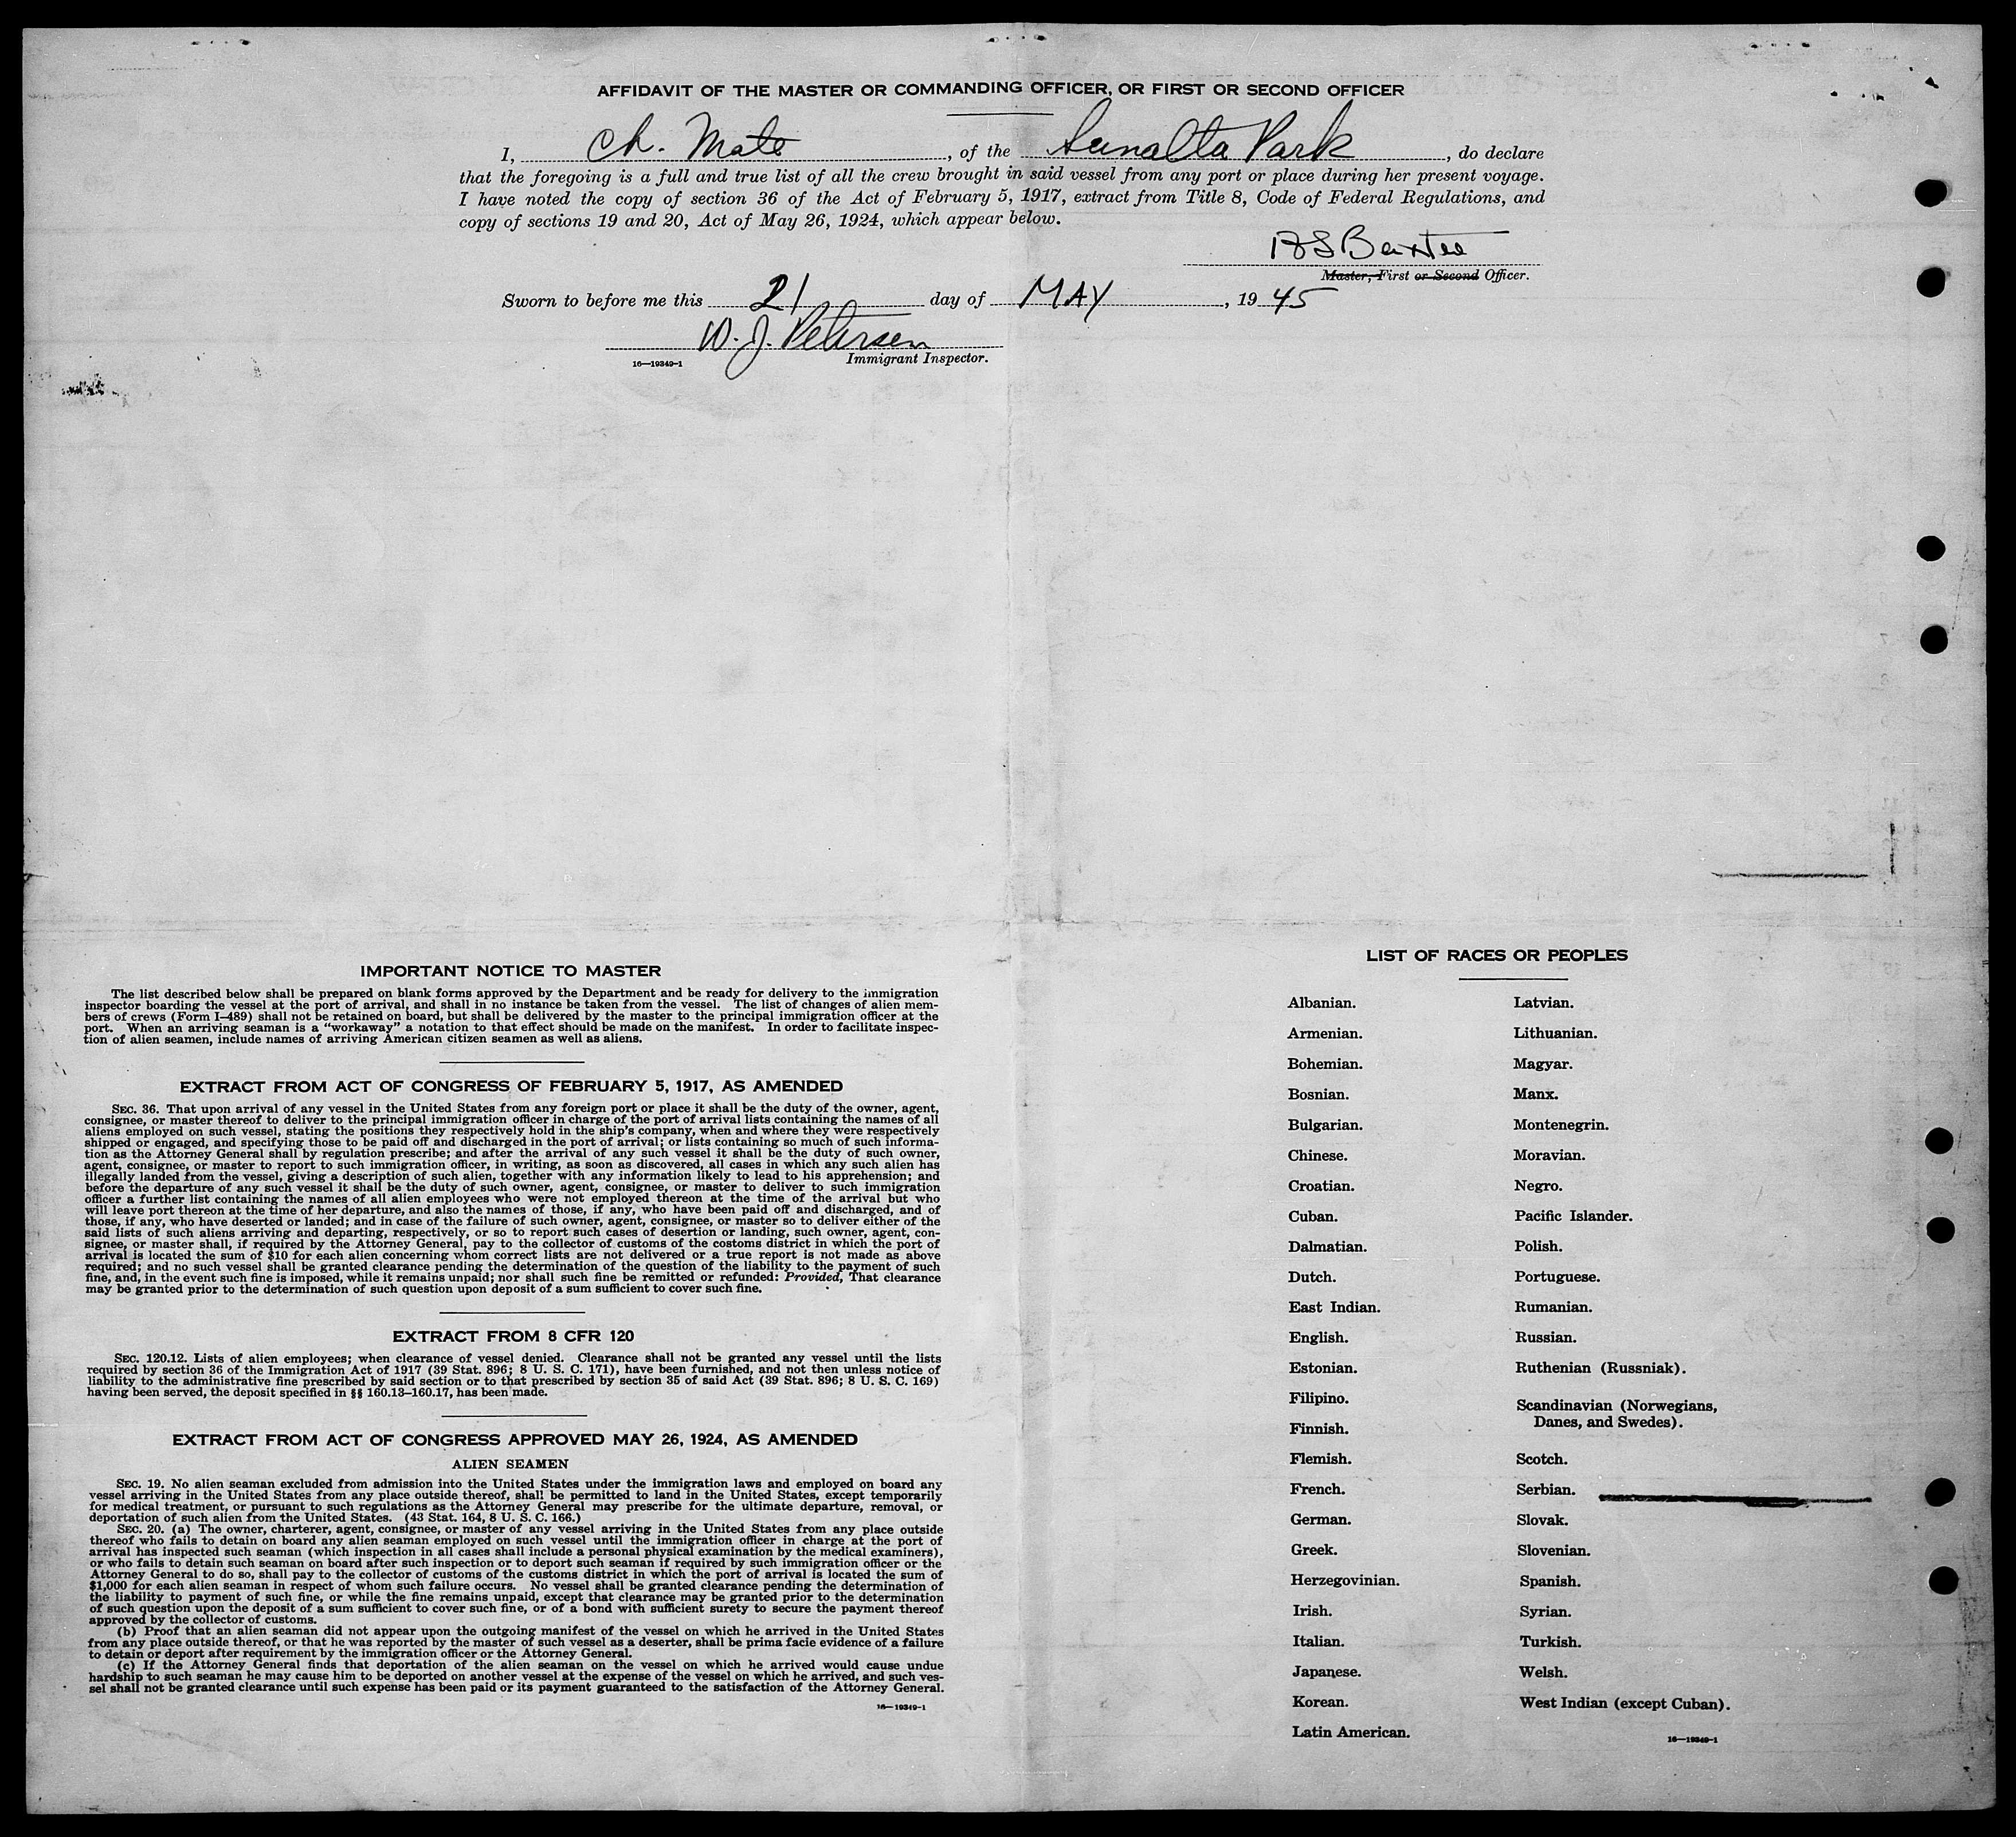 AFFIDAVIT OF THE MASTER OR COMMANDING OFFICER, OR FIRST OR SECOND OFFICER
I, Ch. Mate, of the Sunalta Park, do declare
that the foregoing is a full and true list of all the crew brought in said vessel from any port or place during her present voyage.
I have noted the copy of section 36 of the Act of February 5, 1917, extract from Title 8, Code of Federal Regulations, and
copy of sections 19 and 20, Act of May 26, 1924, which appear below.
Baxter
Master, First or Second Officer.
Sworn to before me this 21 day of MAY, 1945
W. J. Petersen
16—19349-1 Immigrant Inspector.
IMPORTANT NOTICE TO MASTER
The list described below shall be prepared on blank forms approved by the Department and be ready for delivery to the immigration
inspector boarding the vessel at the port of arrival, and shall in no instance be taken from the vessel. The list of changes of alien mem-
bers of crews (Form I-489) shall not be retained on board, but shall be delivered by the master to the principal immigration officer at the
port. When an arriving seaman is a "workaway" a notation to that effect should be made on the manifest. In order to facilitate inspec-
tion of alien seamen, include names of arriving American citizen seamen as well as aliens.
EXTRACT FROM ACT OF CONGRESS OF FEBRUARY 5, 1917, AS AMENDED
SEC. 36. That upon arrival of any vessel in the United States from any foreign port or place it shall be the duty of the owner, agent,
consignee, or master thereof to deliver to the principal immigration officer in charge of the port of arrival lists containing the names of all
aliens employed on such vessel, stating the positions they respectively hold in the ship's company, when and where they were respectively
shipped or engaged, and specifying those to be paid off and discharged in the port of arrival; or lists containing so much of such informa-
tion as the Attorney General shall by regulation prescribe; and after the arrival of any such vessel it shall be the duty of such owner,
agent, consignee, or master to report to such immigration officer, in writing, as soon as discovered, all cases in which any such alien has
illegally landed from the vessel, giving a description of such alien, together with any information likely to lead to his apprehension; and
before the departure of any such vessel it shall be the duty of such owner, agent, consignee, or master to deliver to such immigration
officer a further list containing the names of all alien employees who were not employed thereon at the time of the arrival but who
will leave port thereon at the time of her departure, and also the names of those, if any, who have been paid off and discharged, and of
those, if any, who have deserted or landed; and in case of the failure of such owner, agent, consignee, or master so to deliver either of the
said lists of such aliens arriving and departing, respectively, or so to report such cases of desertion or landing, such owner, agent, con-
signee, or master shall, if required by the Attorney General, pay to the collector of customs of the costoms district in which the port of
arrival is located the sum of $10 for each alien concerning whom correct lists are not delivered or a true report is not made as above
required; and no such vessel shall be granted clearance pending the determination of the question of the liability to the payment of such
fine, and, in the event such fine is imposed, while it remains unpaid; nor shall such fine be remitted or refunded: Provided, That clearance
may be granted prior to the determination of such question upon deposit of a sum sufficient to cover such fine.
EXTRACT FROM 8 CFR 120
SEC. 120.12. Lists of alien employees; when clearance of vessel denied. Clearance shall not be granted any vessel until the lists
required by section 36 of the Immigration Act of 1917 (39 Stat. 896; 8 U. S. C. 171), have been furnished, and not then unless notice of
liability to the administrative fine prescribed by said section or to that prescribed by section 35 of said Act (39 Stat. 896; 8 U. S. C. 169)
having been served, the deposit specified in §§ 160.13–160.17, has been made.
EXTRACT FROM ACT OF CONGRESS APPROVED MAY 26, 1924, AS AMENDED
ALIEN SEAMEN
SEC. 19. No alien seaman excluded from admission into the United States under the immigration laws and employed on board any
vessel arriving in the United States from any place outside thereof, shall be permitted to land in the United States, except temporarily
for medical treatment, or pursuant to such regulations as the Attorney General may prescribe for the ultimate departure, removal, or
deportation of such alien from the United States. (43 Stat. 164, 8 U. S. C. 166.)
SEC. 20. (a) The owner, charterer, agent, consignee, or master of any vessel arriving in the United States from any place outside
thereof who fails to detain on board any alien seaman employed on such vessel until the immigration officer in charge at the port of
arrival has inspected such seaman (which inspection in all cases shall include a personal physical examination by the medical examiners),
or who fails to detain such seaman on board after such inspection or to deport such seaman if required by such immigration officer or the
Attorney General to do so, shall pay to the collector of customs of the customs district in which the port of arrival is located the sum of
$1,000 for each alien seaman in respect of whom such failure occurs. No vessel shall be granted clearance pending the determination of
the liability to payment of such fine, or while the fine remains unpaid, except that clearance may be granted prior to the determination
of such question upon the deposit of a sum sufficient to cover such fine, or of a bond with sufficient surety to secure the payment thereof
approved by the collector of customs.
(b) Proof that an alien seaman did not appear upon the outgoing manifest of the vessel on which he arrived in the United States
from any place outside thereof, or that he was reported by the master of such vessel as a deserter, shall be prima facie evidence of a failure
to detain or deport after requirement by the immigration officer or the Attorney General.
(c) If the Attorney General finds that deportation of the alien seaman on the vessel on which he arrived would cause undue
hardship to such seaman he may cause him to be deported on another vessel at the expense of the vessel on which he arrived, and such ves-
sel shall not be granted clearance until such expense has been paid or its payment guaranteed to the satisfaction of the Attorney General.
16—19349-1
LIST OF RACES OR PEOPLES
Albanian.
Armenian.
Bohemian.
Bosnian.
Bulgarian.
Chinese.
Croatian.
Cuban.
Dalmatian.
Dutch.
East Indian.
English.
Estonian.
Filipino.
Finnish.
Flemish.
French.
German.
Greek.
Herzegovinian.
Irish.
Italian.
Japanese.
Korean.
Latin American.
Latvian.
Lithuanian.
Magyar.
Manx.
Montenegrin.
Moravian.
Negro.
Pacific Islander.
Polish.
Portuguese.
Rumanian.
Russian.
Ruthenian (Russniak).
Scandinavian (Norwegians,
Danes, and Swedes).
Scotch.
Serbian.
Slovak.
Slovenian.
Spanish.
Syrian.
Turkish.
Welsh.
West Indian (except Cuban).
16—19349-1